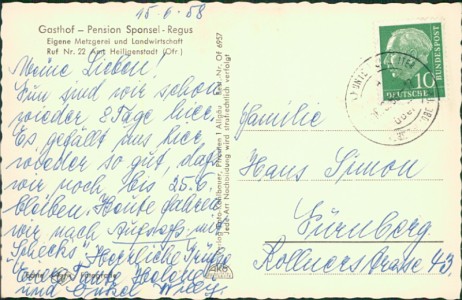 15.6.58
Gasthof – Pension Sponsel-Regus
Eigene Metzgerei und Landwirtschaft
Ruf Nr. 22 Amt Heiligenstadt (Ofr.)
Meine Lieben!
Nun sind wir schon
wieder 8 Tage hier.
Es gefällt uns hier
wieder so gut, daß
wir noch bis 25.6.
bleiben. Heute fahren
wir nach Aufseß mit
"Schecks". Herrliche Grüße
Tante Helene
und Onkel Willy
Best.-Nr. Of 6957
Jede Art Nachbildung wird strafrechtlich verfolgt
10
DEUTSCHE BUNDESPOST
Familie
Hans Simon
Nürnberg
Kollnerstraße 43